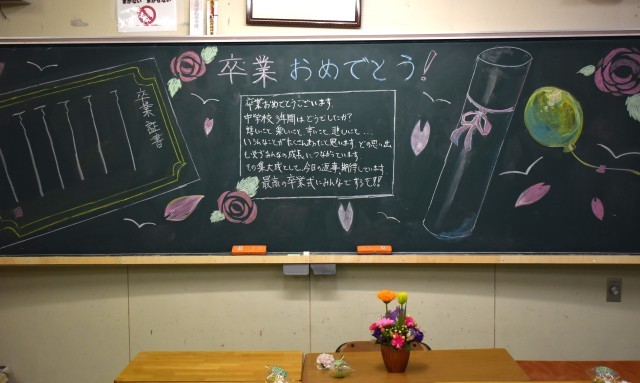 卒業おめでとう!
卒業証書
卒業おめでとうございます。
中学校3年間はどうでしたか?
嬉しいこと、楽しいこと、辛いこと、悲しいこと…
いろんなことがたくさんあったと思います。どの思い出
も必ずみんなの成長につながっています。
その集大成として、今日の返事、期待しています。
最高の卒業式にみんなでするぞ!!